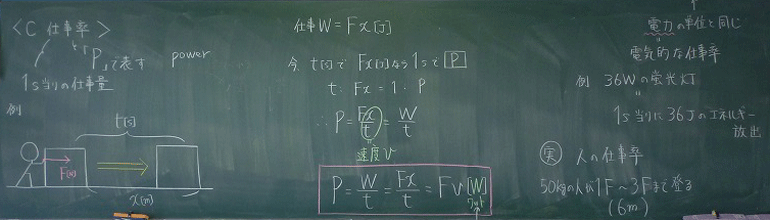 <C 仕事率>
とりP」で表す power
1s当りの仕事量
例
t[s]
F[N]
x[m]
仕事W=Fx[J]
今 t[s]で Fx[J]なら1sで P
t:Fx=1・P
∴P=Fx/t=W/t
速度v
P=W/t=Fx/t=Fv[W]
ワット
電力の単位と同じ
電気的な仕事率
例 36Wの蛍光灯
1s当りに36Jのエネルギー
放出
実 人の仕事率
50kgの人が1F〜3Fまで登る
(6m)